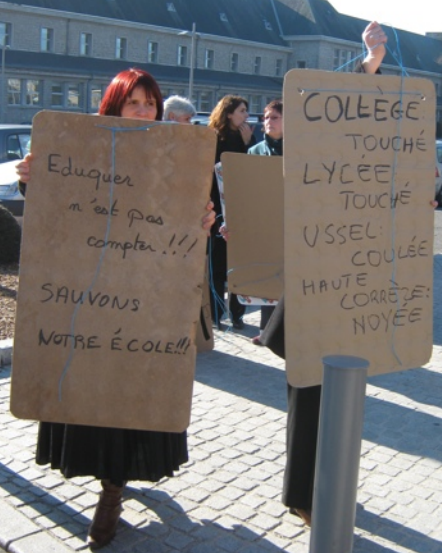 Eduquer
n'est pas
compter !!!
SAUVONS
NOTRE ÉCOLE!!!
COLLÈGE
TOUCHÉ
LYCÉE
TOUCHÉ
USSEL:
COULÉE
HAUTE
CORRÈZE:
NOYÉE